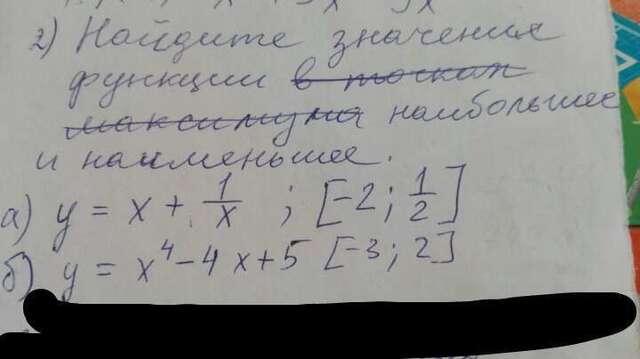 2) Найдите значения
функции в точках
максимума наибольшее
и наименьшее.
а) y = x + 1/x ; [-2; 1/2]
б) y = x⁴ - 4x + 5 [-3; 2]